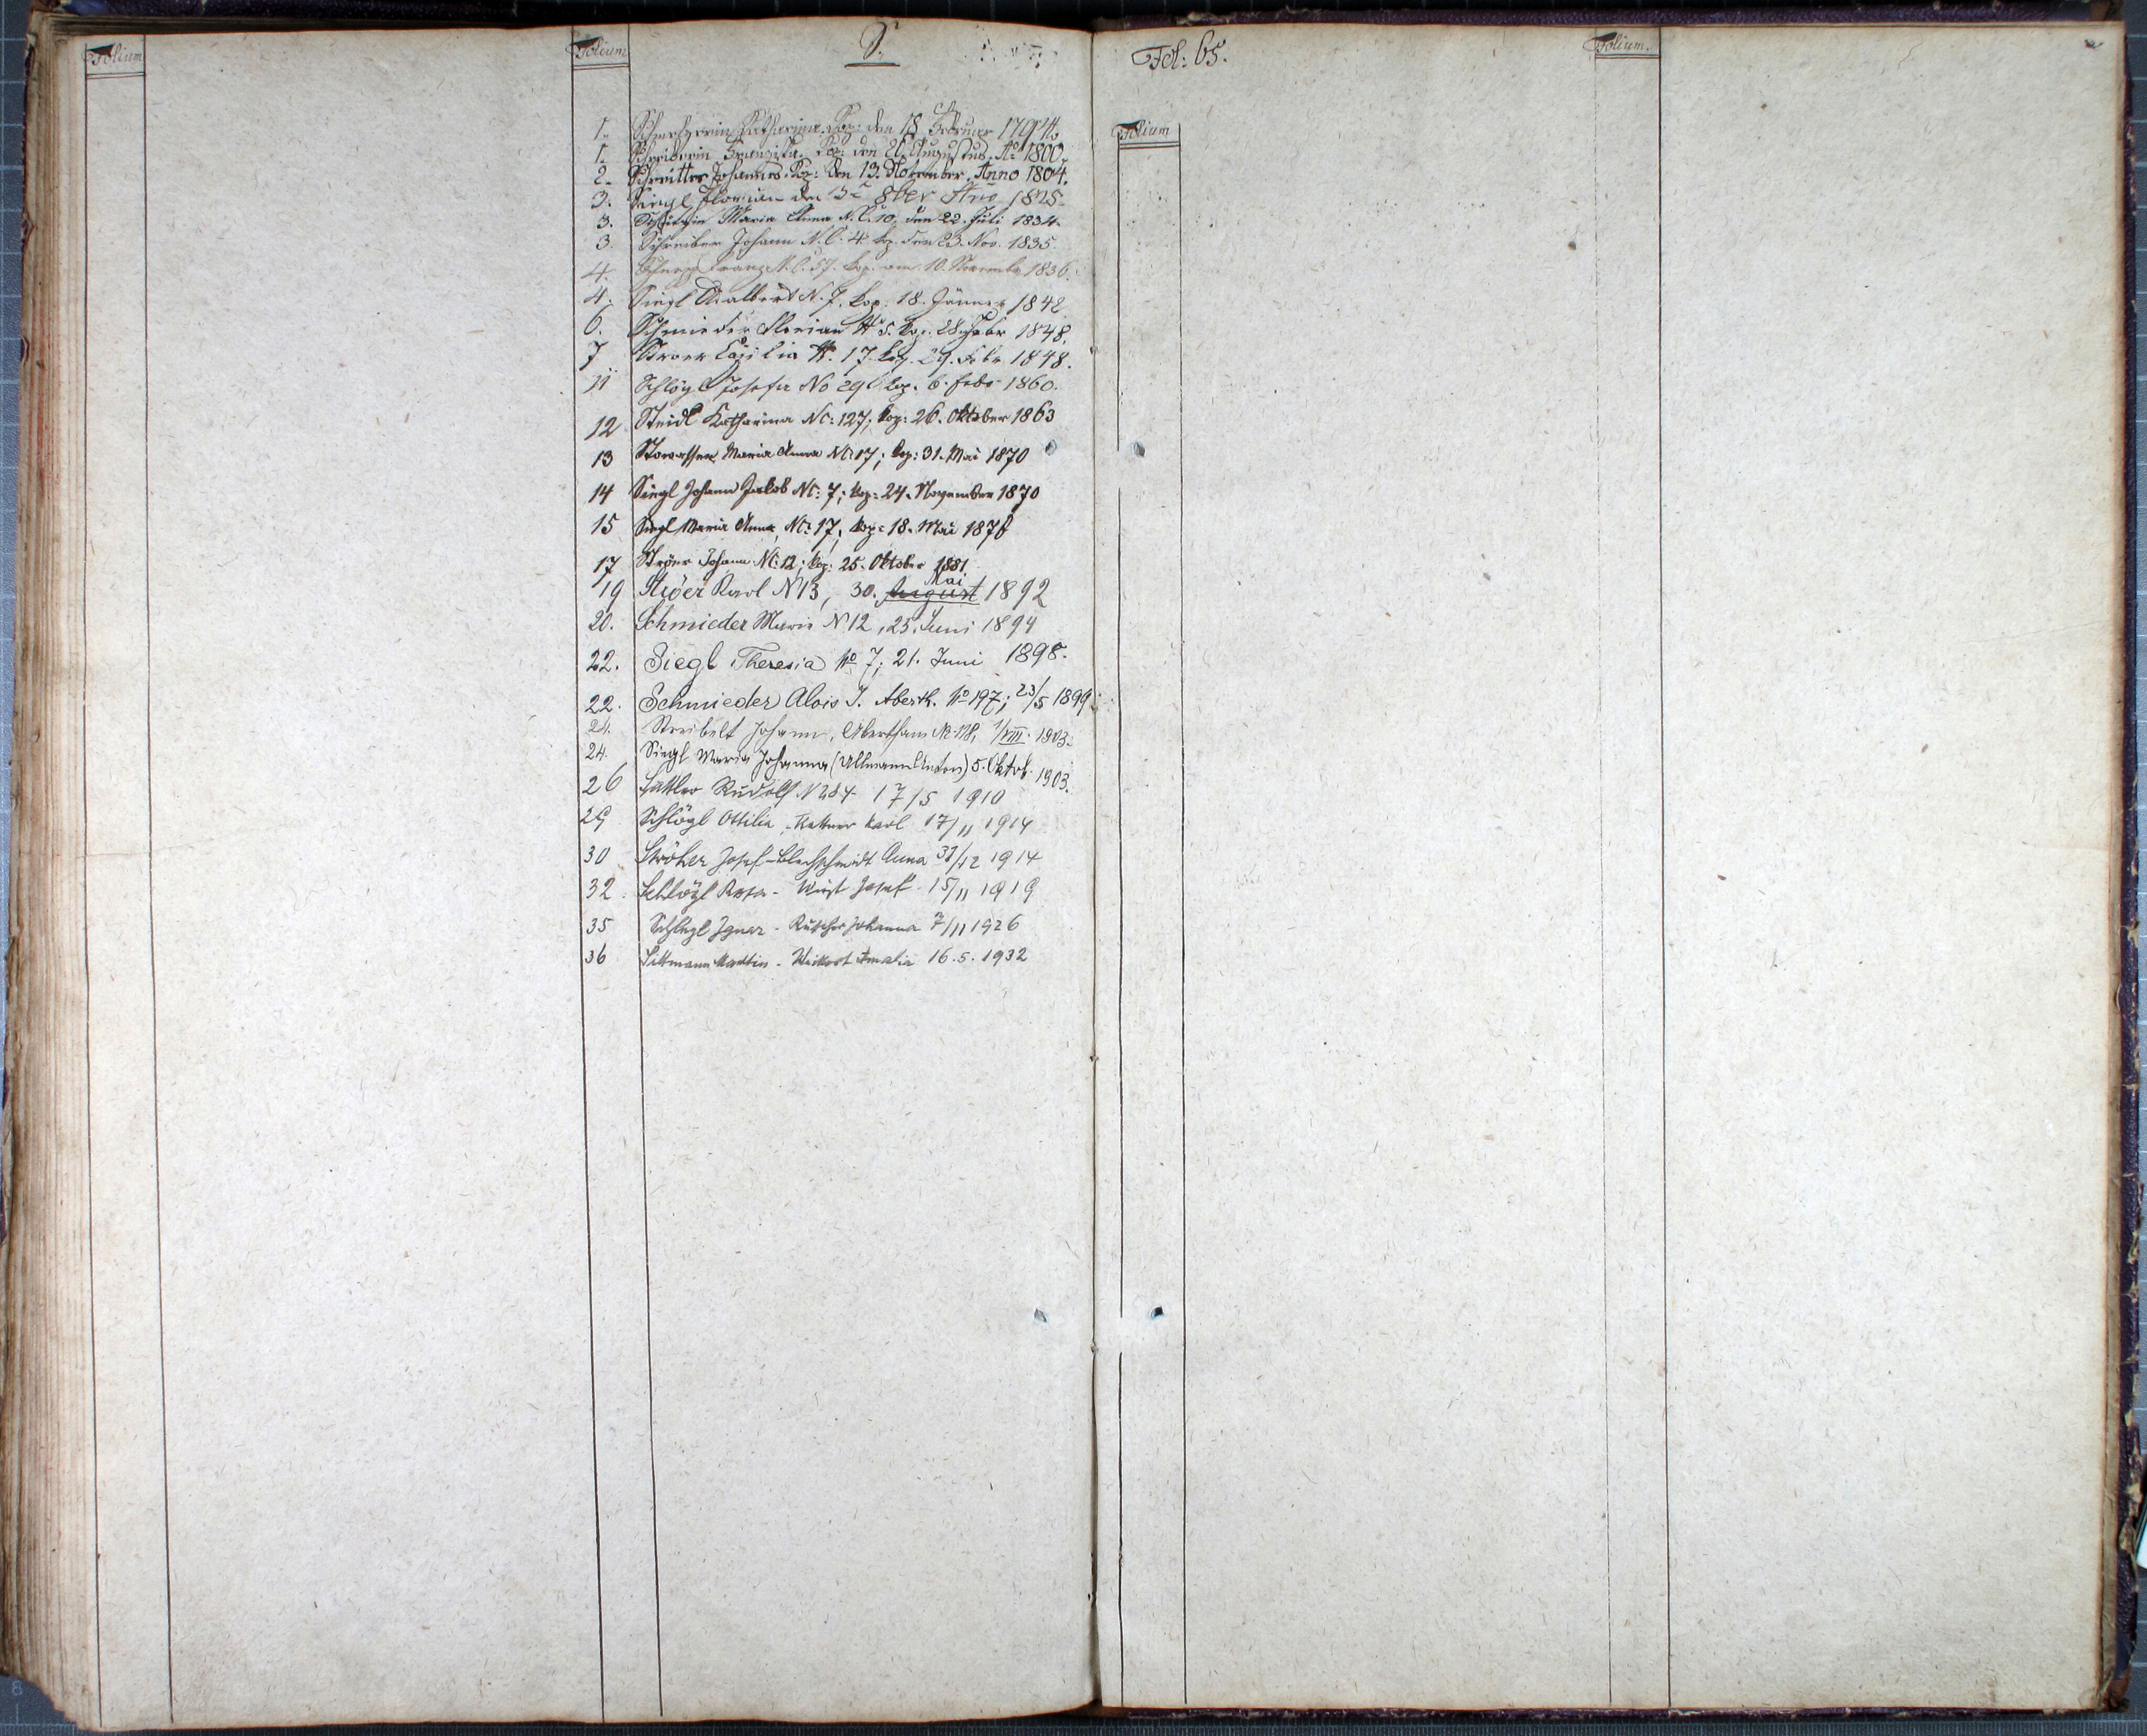 Folium
Folium
S.
1. Katharina. Kop: den 18 Februar 1794.
1. Schreiberin Franziska. Kop: den 26. Augustus. Ao 1800.
2. Schreitter Johannes. Kop: den 13. November. Anno 1804.
3. Siegl Florian den 8ber Ano 1825.
3. Maria Anna N.C. 10. den 22. Juli 1834.
3. Schreiber Johann N.C. 4 kop. den 23. Nov. 1835.
4. Franz N.C. 57. kop. am 10. Novembr 1836.
4. Siegl Adalbert N. 7. kop. 18. Jänner 1842
6. Schmieder Florian No 5. kop. 28. Febr 1848.
7 Ströer Cäzilia N. 17. kop. 29. Febr 1848.
11 Schlögl Josefa No 29 kop. 6. Febr 1860.
12 Steidl Katharina NC: 127; kop: 26. Oktober 1863
13 Stowasser Maria Anna NC: 17; kop: 31. Mai 1870
14 Siegl Johann Jakob NC: 7; kop: 24. November 1870
15 Siegl Maria Anna, NC: 17, kop: 18. Mai 187
17 Ströer Johann NC: 12; kop: 25. Oktober 1881.
19 Ströer Karl N 13, 30. August Mai 1892
20. Schmieder Marie N. 12, 25. Juni 1894
22. Siegl Theresia No 7; 21. Juni 1898.
22. Schmieder Alois J. Aberth. No 197; 23/5 1899
24. Streibelt Johann, Abertham Nr. 178, 1/VIII. 1903.
24. Siegl Maria Johanna (Ullmann Anton) 5. Oktob. 1903.
26 Sattler Rudolf N 284 17/5 1910
29 Schlögl Ottilia, Kettner Karl 17/11 1914
30 Ströher Josef - Blechschmidt Anna 31/12 1914
32. Schlögl Rosa - Wüst Josef - 15/11 1919
35 Schlögl Ignaz - Rüscher Johanna 7/11 1926
36 Sittmann Martin - Weikert Amalia 16.5.1932
Fol: 65.
Folium
Folium.